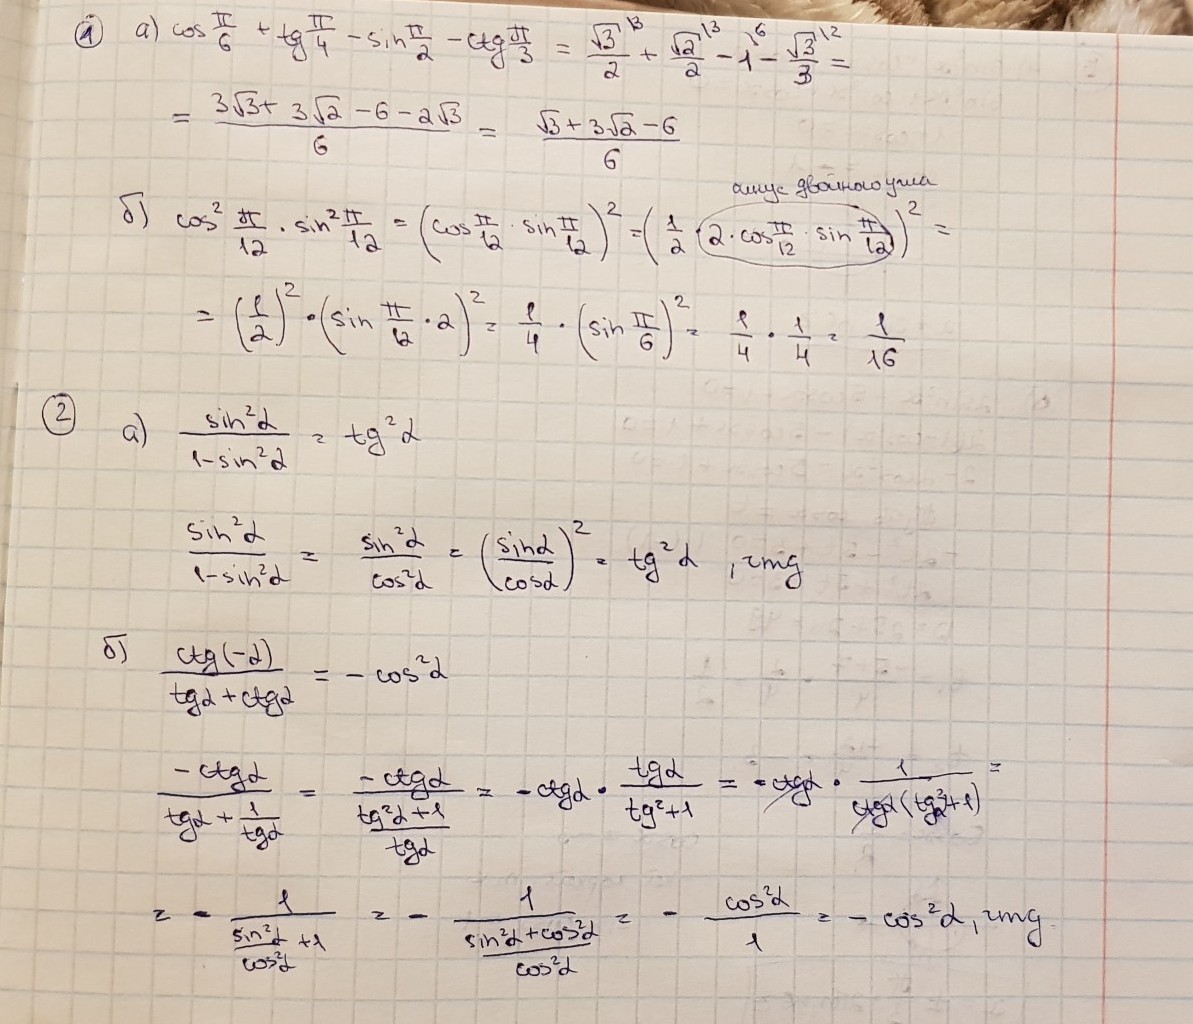 ① а) cos π/6 + tg π/4 - sin π/2 - ctg π/3 = √3/2 \3 + √2/2 \3 - 1 \6 - √3/3 \2 =
= (3√3 + 3√2 - 6 - 2√3)/6 = (√3 + 3√2 - 6)/6
синус двойного угла
б) cos² π/12 · sin² π/12 = (cos π/12 · sin π/12)² = (1/2 (2 · cos π/12 · sin π/12))² =
= (1/2)² · (sin π/12 · 2)² = 1/4 · (sin π/6)² = 1/4 · 1/4 = 1/16
② а) sin²α/(1-sin²α) = tg²α
sin²α/(1-sin²α) = sin²α/cos²α = (sinα/cosα)² = tg²α , чтд
б) ctg(-α)/(tgα + ctgα) = - cos²α
-ctgα/(tgα + 1/tgα) = -ctgα/((tg²α+1)/tgα) = -ctgα · tgα/(tg²+1) = -ctgα · 1/(ctgα (tg²α+1)) =
= - 1/(sin²α/cos²α +1) = - 1/((sin²α+cos²α)/cos²α) = - cos²α/1 = - cos²α, чтд.